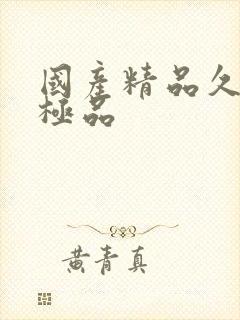 國產精品久
極品
黄青真